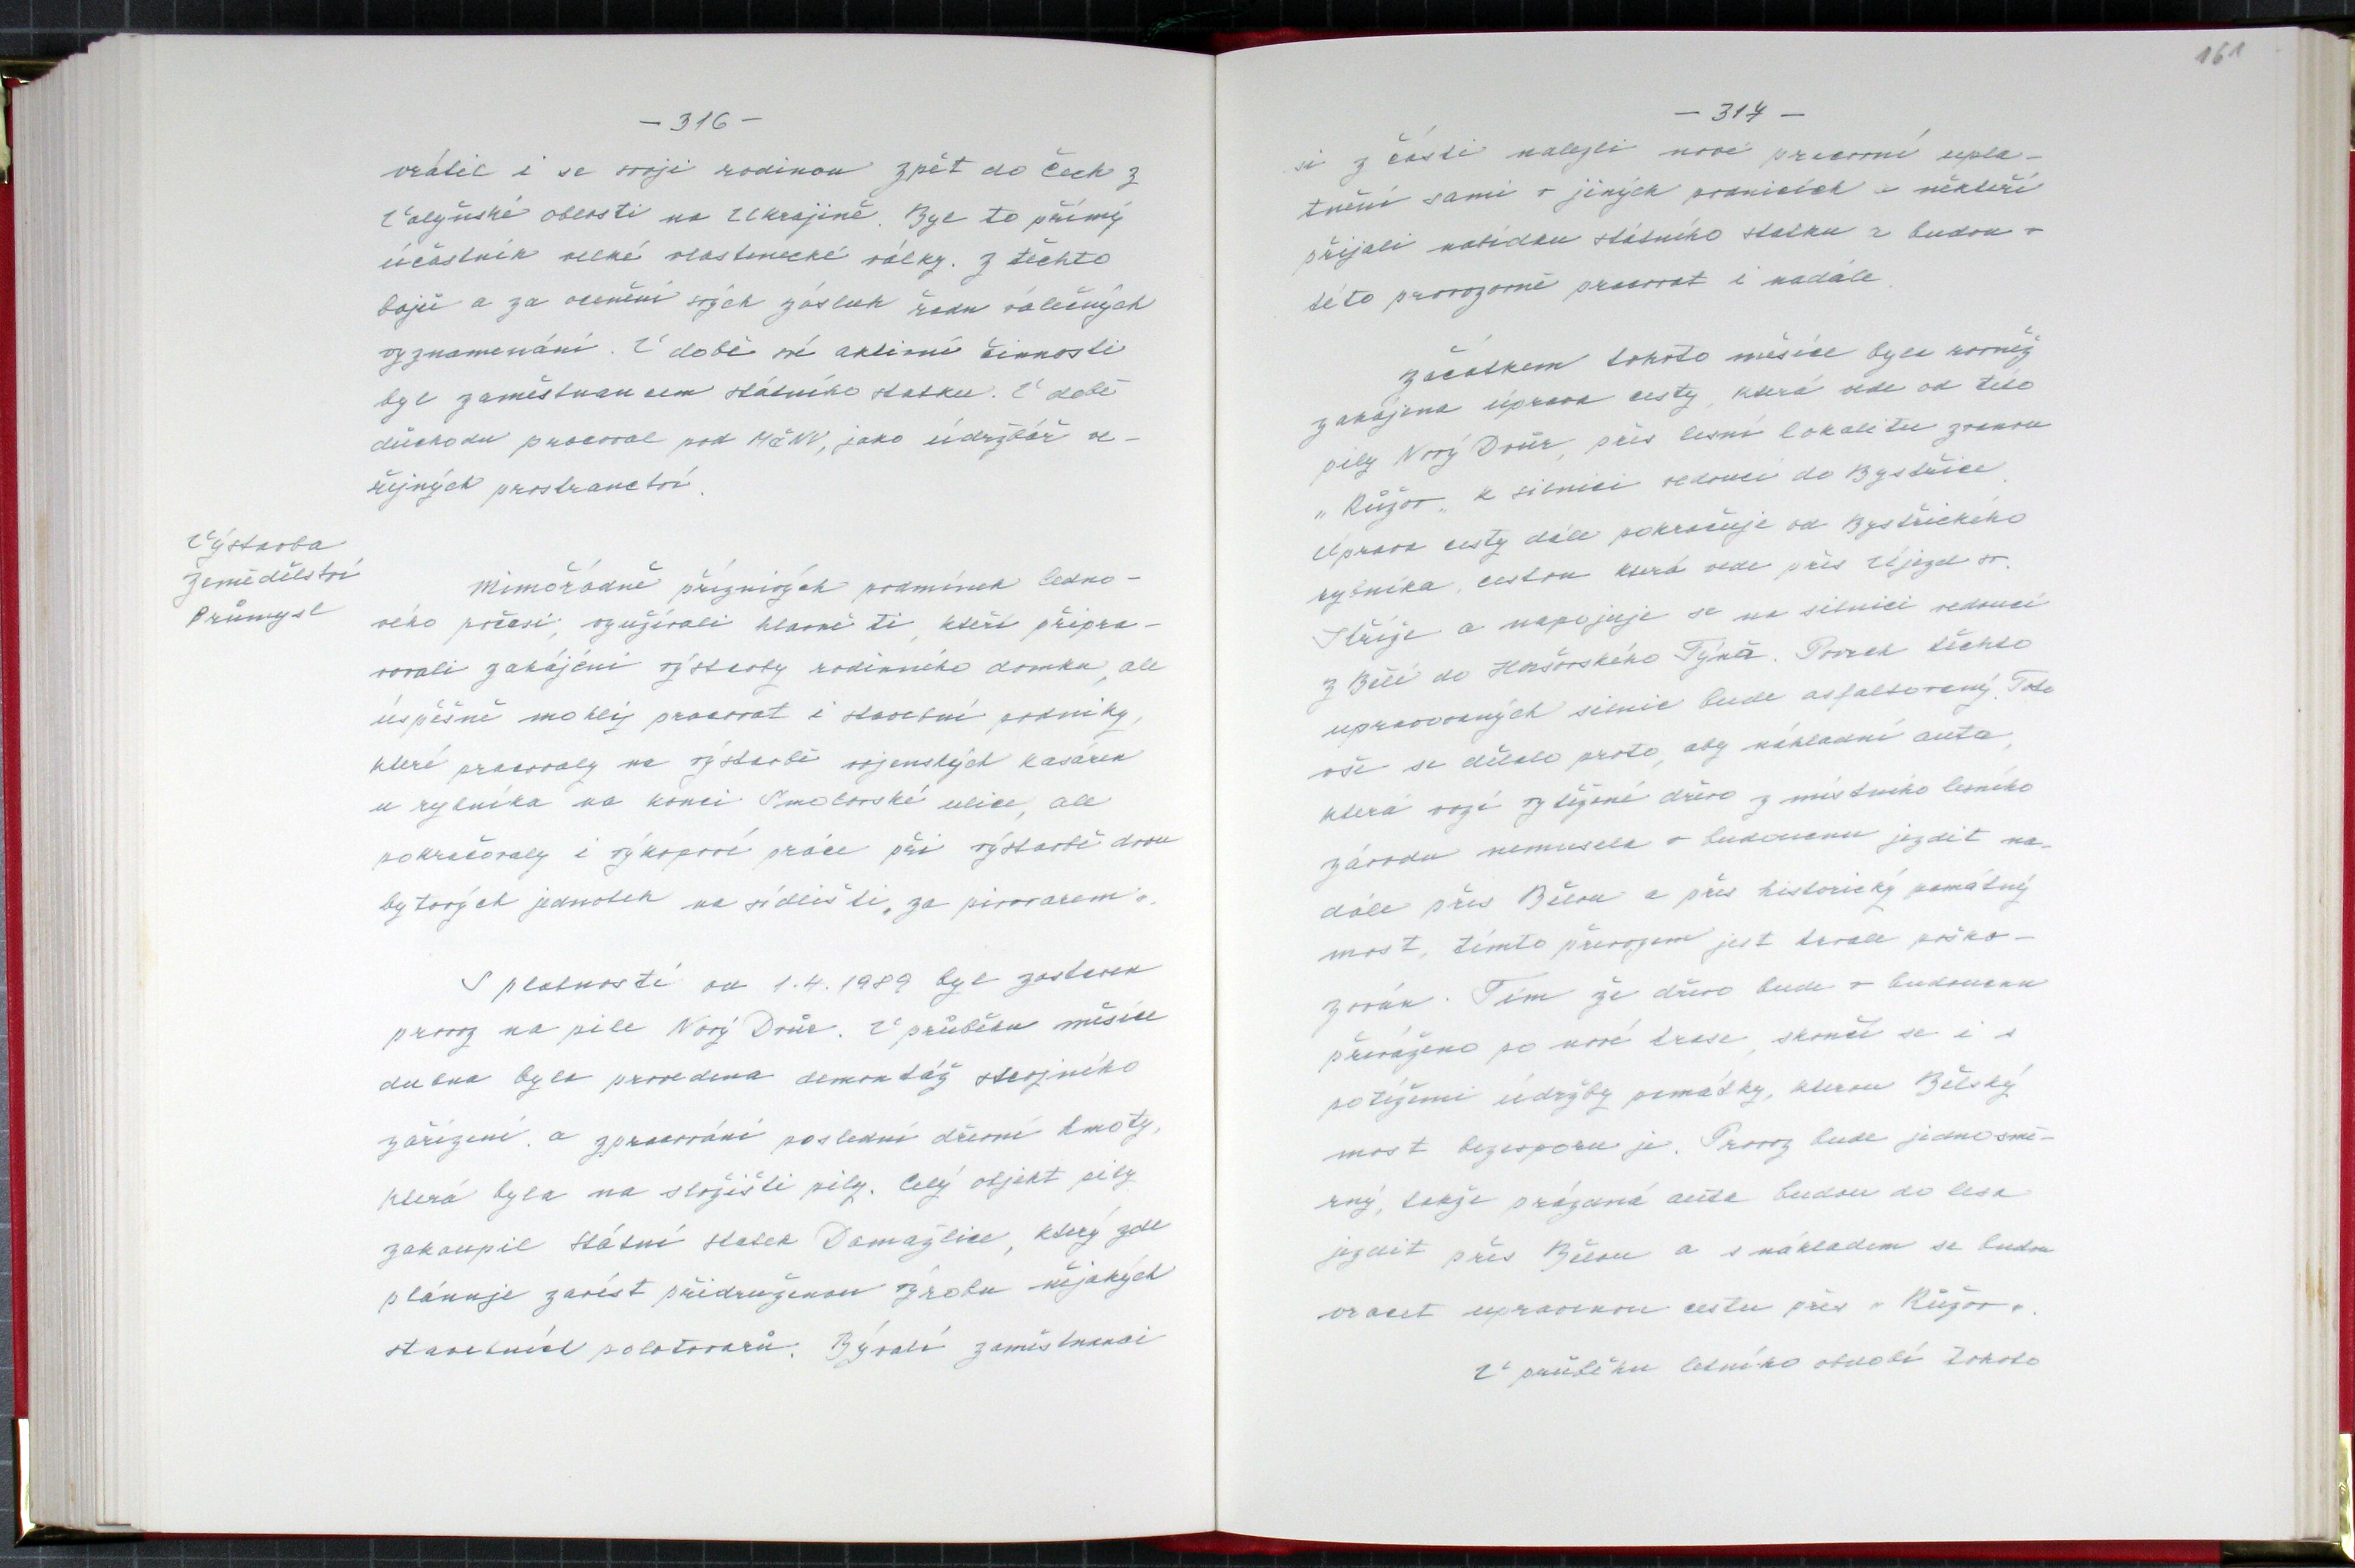 - 316 -
vrátil i se svoji rodinou zpět do Čech z
Volyňské oblasti na Ukrajině. Byl to přímý
účastník velké vlastenecké války. Z těchto
bojů a za ocenění svých zásluh řadu válečných
vyznamenání. V době své aktivní činnosti
byl zaměstnancem státního statku. V době
důchodu pracoval pod MěNV, jako údržbář ve-
řejných prostranctví.
Výstavba
Zemědělství
Průmysl
Mimořádně příznivých podmínek ledno-
vého počasí, využívali hlavně ti, kteří připra-
vovali zahájení výstavby rodinného domku, ale
úspěšně mohly pracovat i stavební podniky,
které pracovaly na výstavbě vojenských kasáren
u rybníka na konci Smolovské ulice, ale
pokračovaly i výkopové práce při výstavbě dvou
bytových jednotek na sídlišti „za pivovarem“.
S platností od 1.4. 1989 byl zastaven
provoz na pile Nový Dvůr. V průběhu měsíce
dubna byla provedena demontáž strojního
zařízení. a zpracování poslední dřevní hmoty,
která byla na složišti pily. Celý objekt pily
zakoupil Státní statek Domažlice, který zde
plánuje zavést přidruženou výrobu nějakých
stavebních polotovarů. Bývalí zaměstnanci
161
- 317 -
si z části nalezli nové pracovní upla-
tnění sami v jiných podnicích a někteří
přijali nabídku státního statku a budou v
této provozovně pracovat i nadále.
Začátkem tohoto měsíce byla rovněž
zahájena úprava cesty, která vede od této
pily Nový Dvůr, přes lesní lokalitu zvanou
„Růžov“ k silnici vedoucí do Bystřice.
Úprava cesty dále pokračuje od Bystřického
rybníka, cestou která vede přes Újezd sv.
Kříže a napojuje se na silnici vedoucí
z Bělé do Horšovského Týna. Povrch těchto
upravovaných silnic bude asfaltovaný. Toto
vše se dělalo proto, aby nákladní auta,
která vozí vytěžené dřevo z místního lesního
závodu nemusela v budoucnu jezdit na-
dále přes Bělou a přes historický památný
most, tímto převozem jest trvale poško-
zován. Tím že dřevo bude v budoucnu
převáženo po nové trase, skončí se i s
potížemi údržby památky, kterou Bělský
most bezesporu je. Provoz bude jednosmě-
rný, takže prázdná auta budou do lesa
jezdit přes Bělou a s nákladem se budou
vracet upravenou cestu přes „Růžov“.
V průběhu letního období tohoto